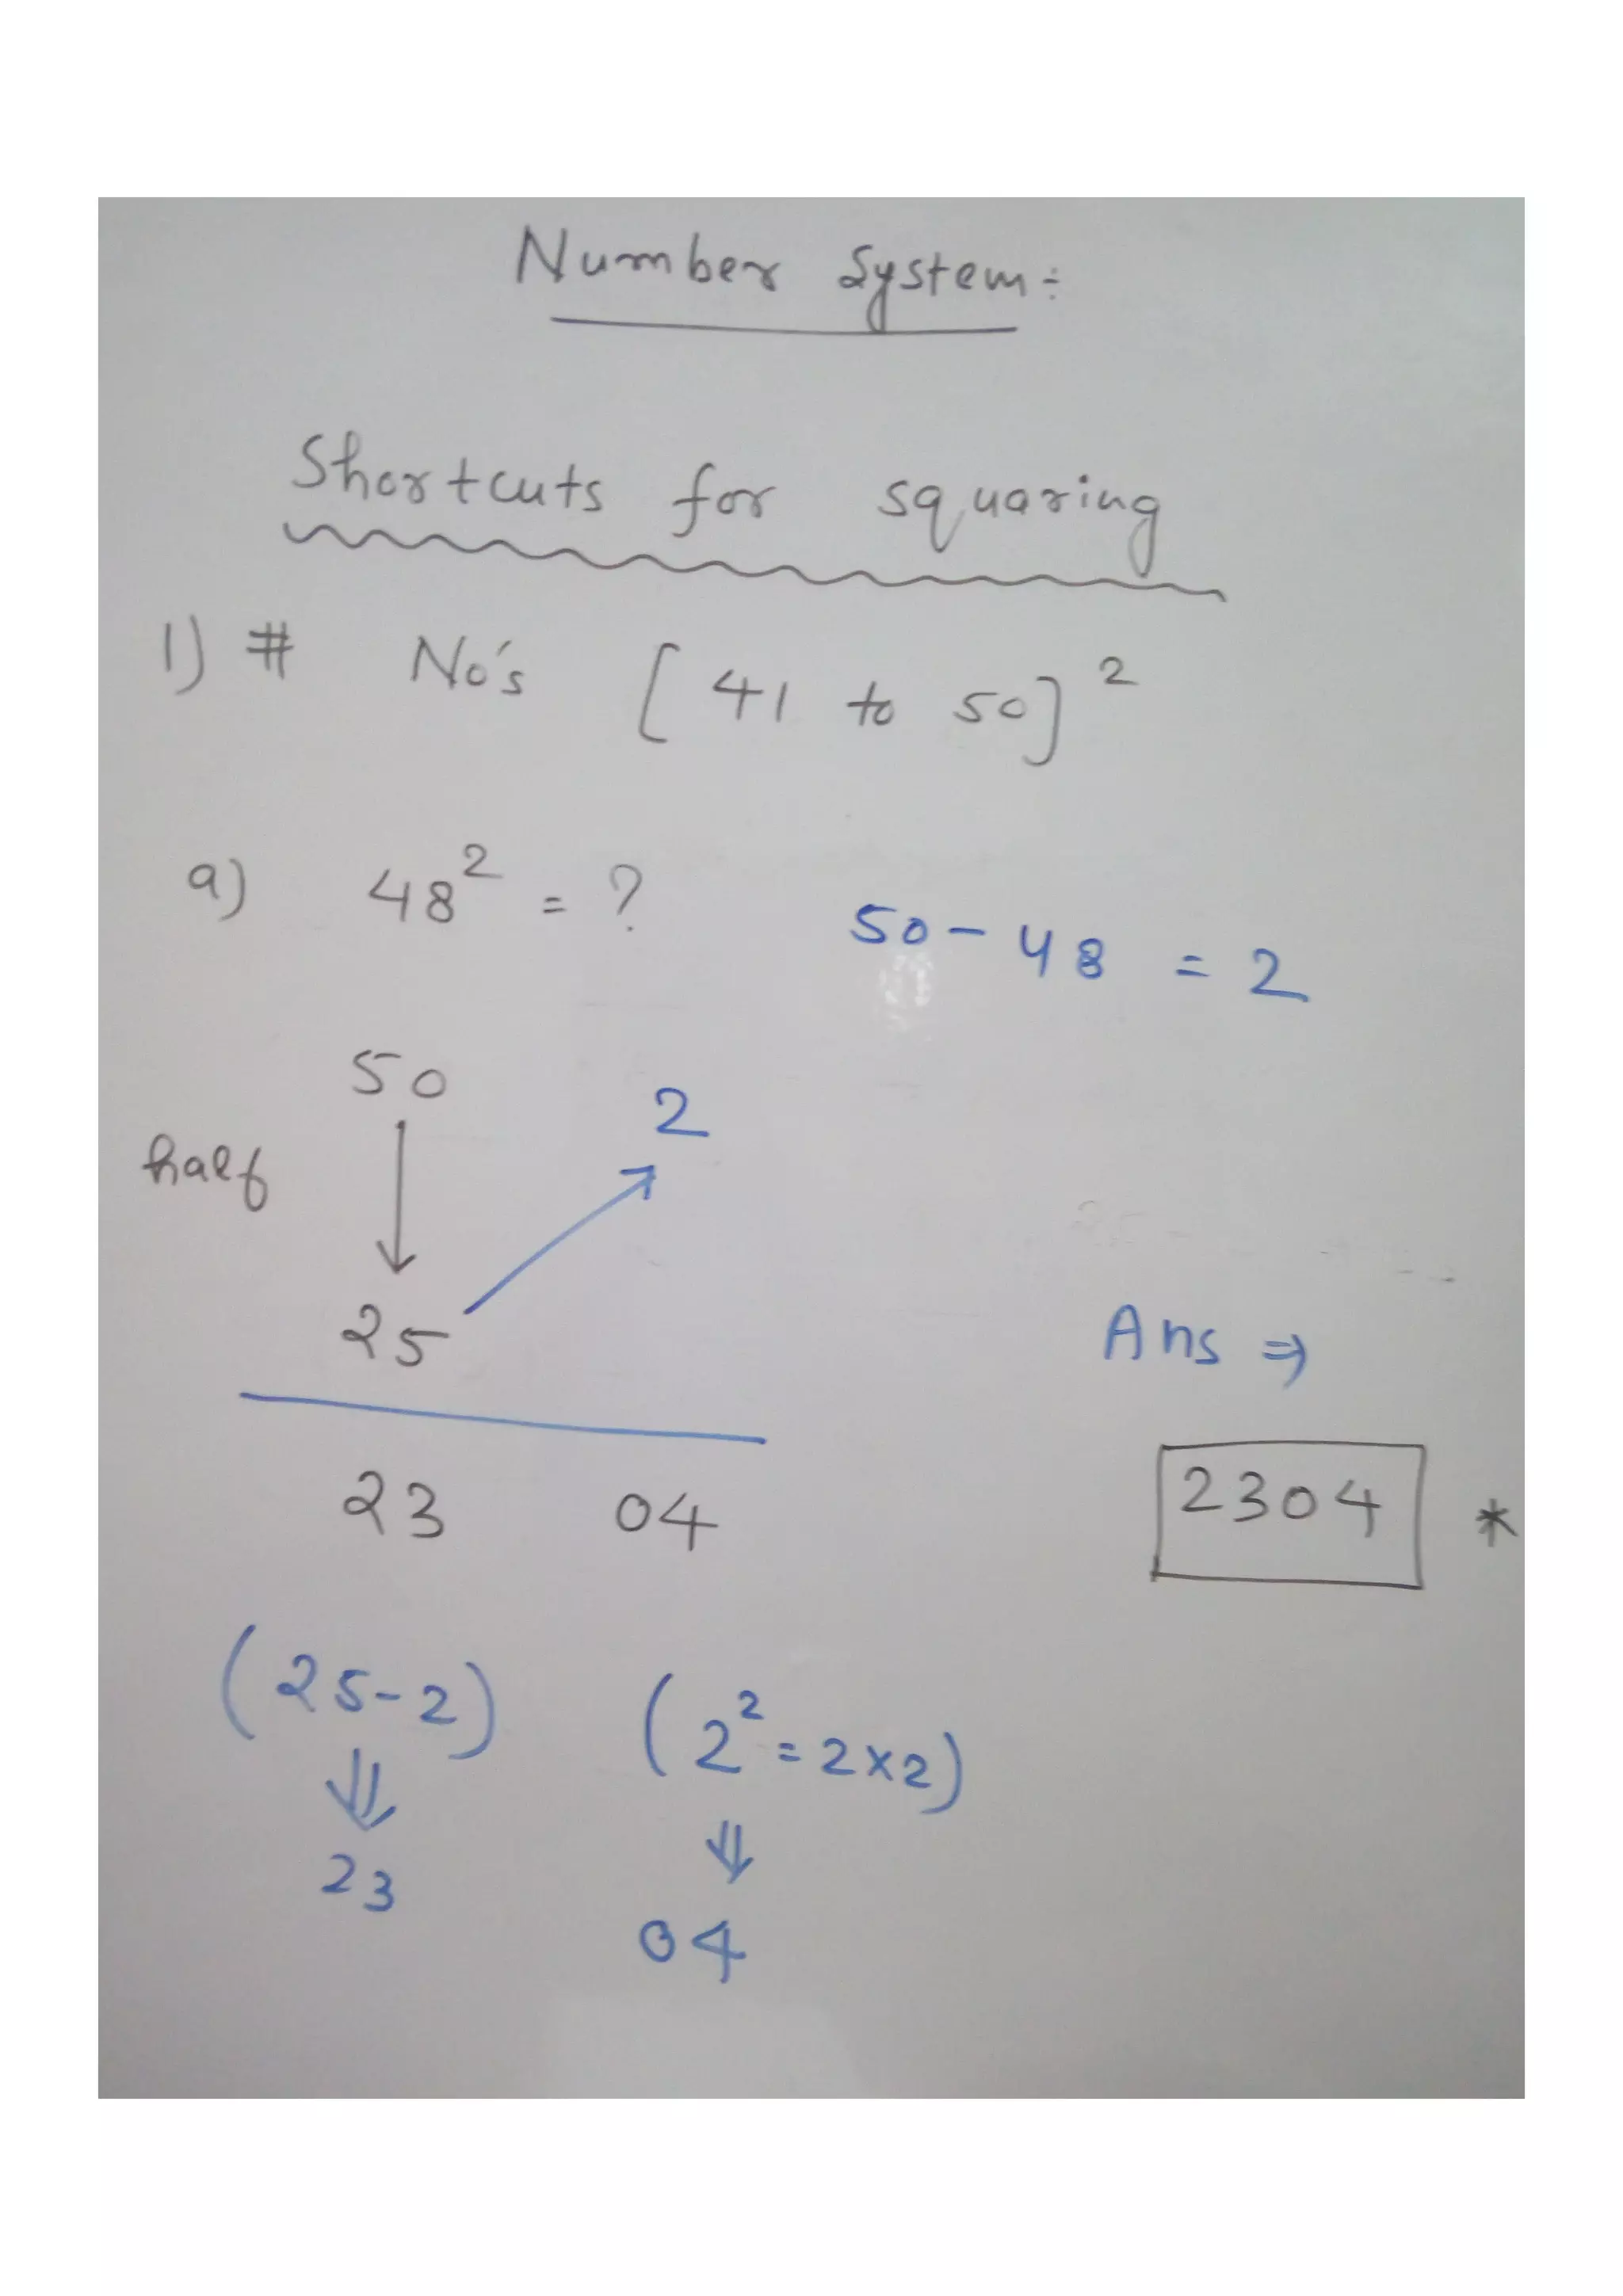 Number System:
Shortcuts for squaring
1) # No's [41 to 50]²
a) 48² = ? 50 - 48 = 2
50 2
half
25
Ans ⇒
23 04 2304 *
(25-2) (2² = 2×2)
⇓ ⇓
23 04